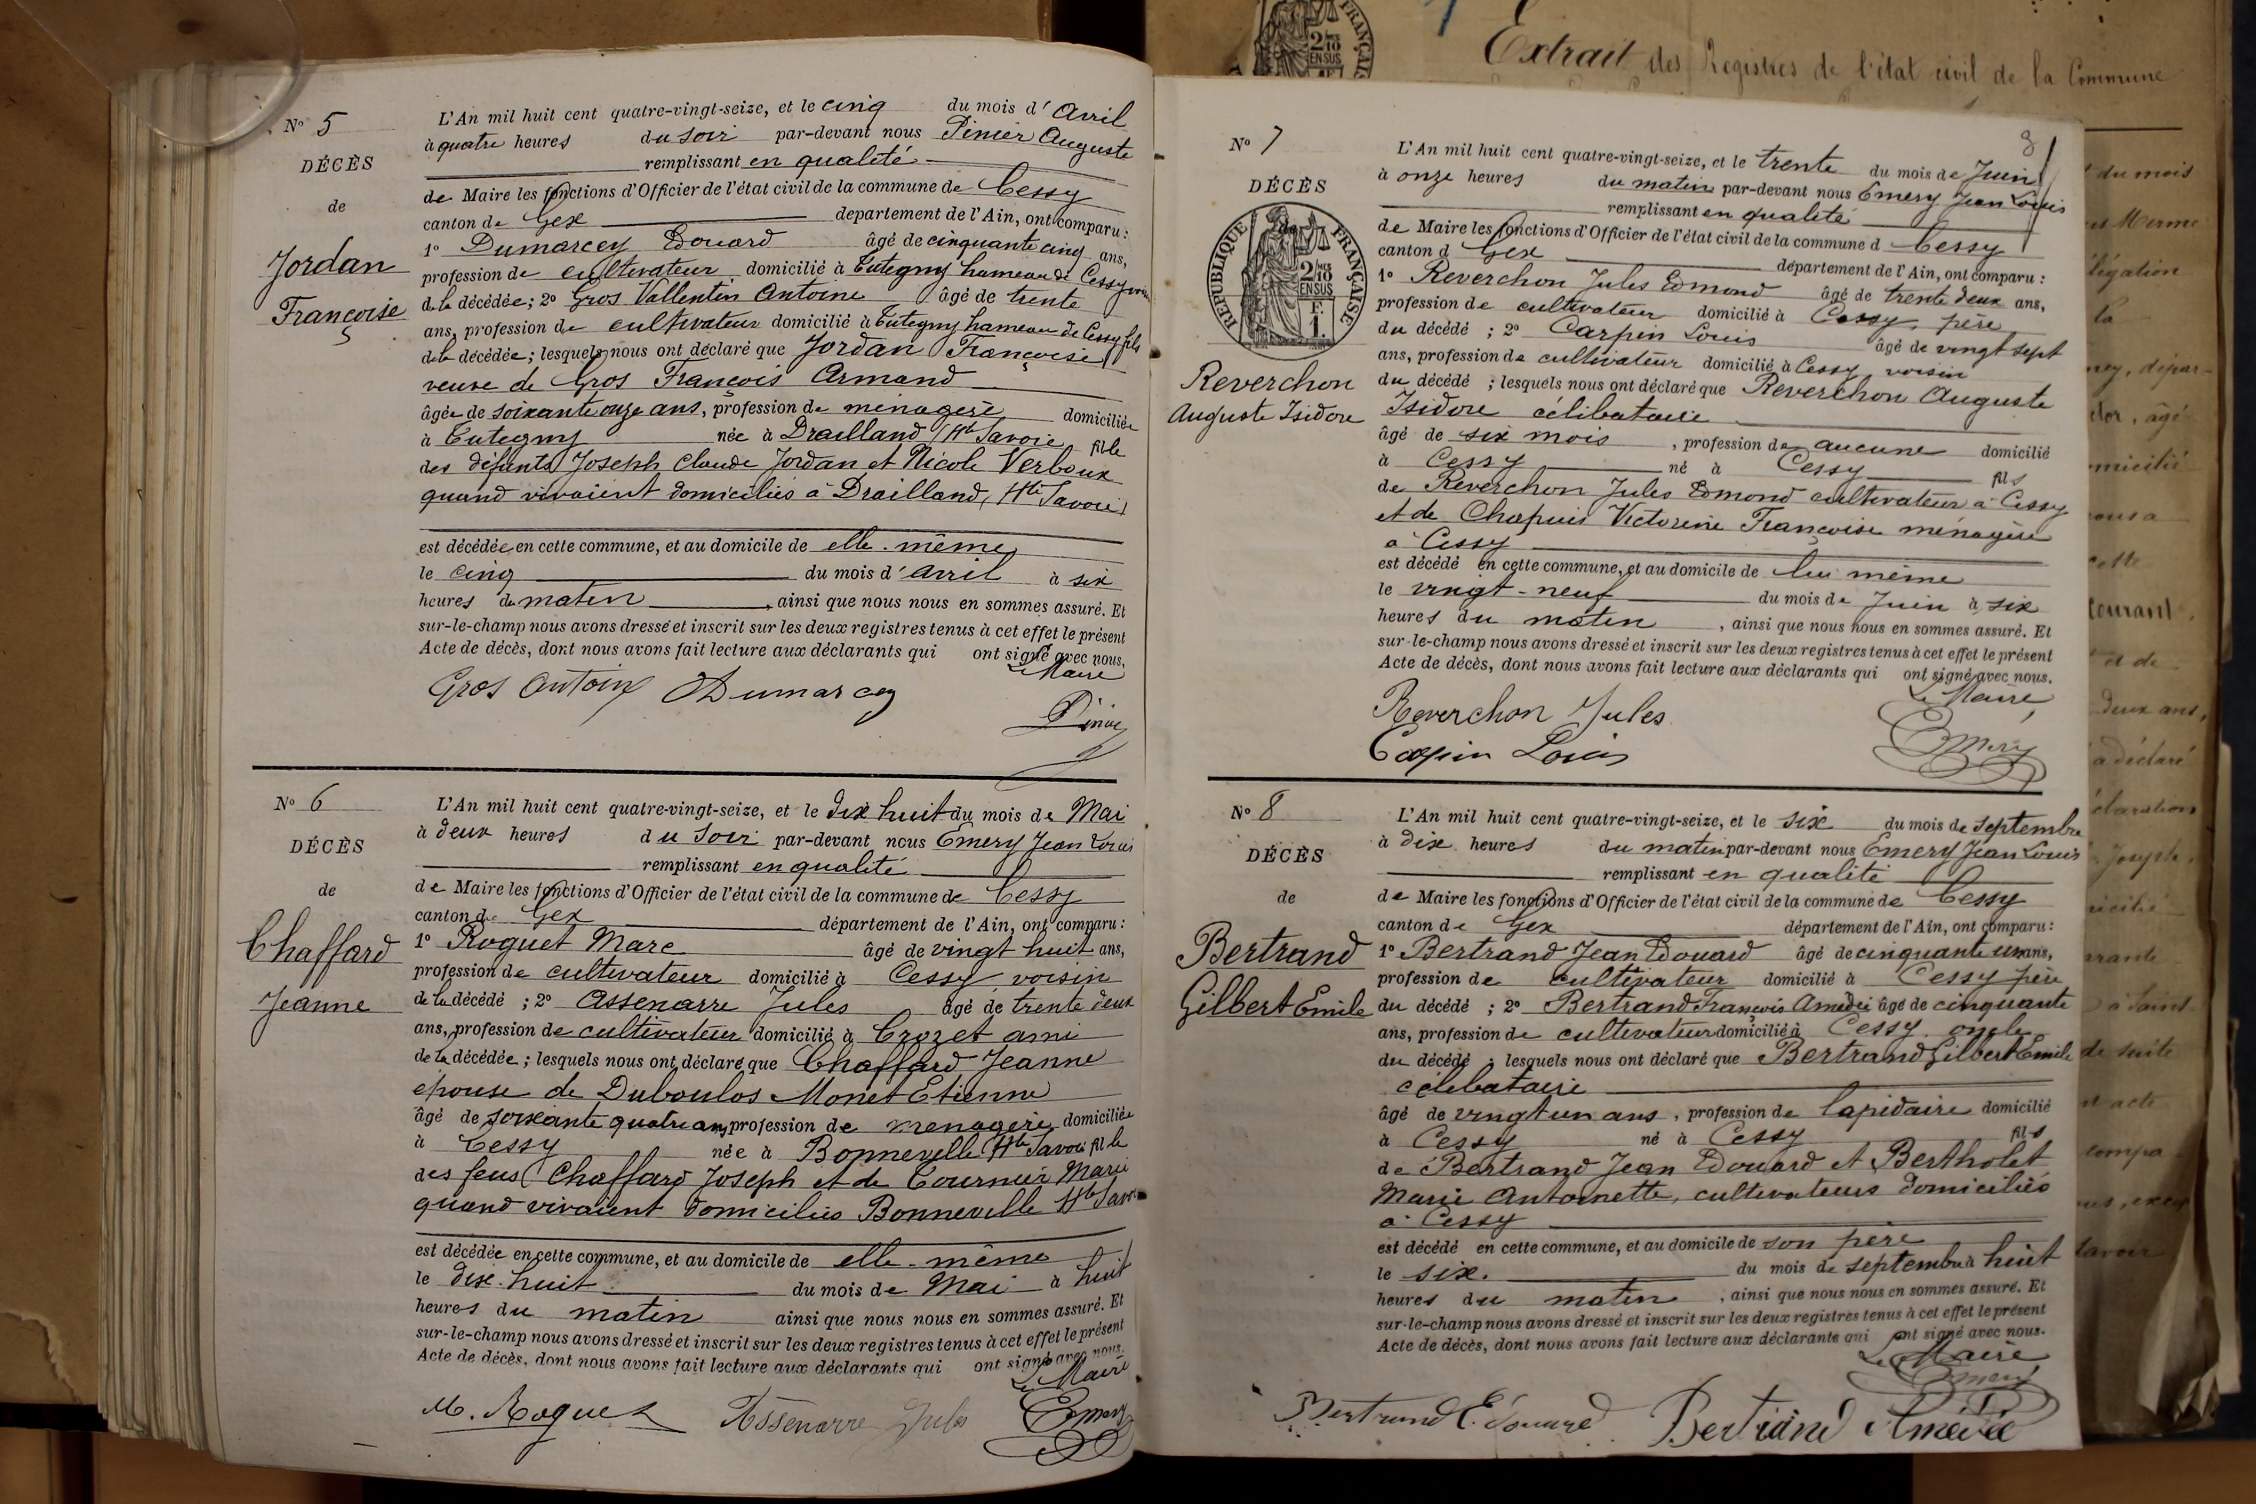 N° 5
DÉCÈS
de
Jordan
Françoise
L'An mil huit cent quatre-vingt-seize, et le cinq du mois d'Avril
à quatre heures du soir par-devant nous Pinier Auguste
remplissant en qualité
de Maire les fonctions d'Officier de l'état civil de la commune de Cessy
canton de Gex département de l'Ain, ont comparu :
1° Dumarcey Edouard âgé de cinquante cinq ans,
profession de cultivateur domicilié à Tutegny hameau de Cessy
de la décédée ; 2° Gros Vallentin Antoine âgé de trente
ans, profession de cultivateur domicilié à Tutegny hameau de Cessy fils
de la décédée ; lesquels nous ont déclaré que Jordan Françoise
veuve de Gros François Armand
âgée de soixante onze ans, profession de ménagère domiciliée
à Tutegny née à Drailland (Hte Savoie fille
des défunts Joseph Claude Jordan et Nicole Verboux
quand vivaient domiciliés à Drailland, (Hte Savoie)
est décédée en cette commune, et au domicile de elle-même
le cinq du mois d'avril à six
heures du matin, ainsi que nous nous en sommes assuré. Et
sur-le-champ nous avons dressé et inscrit sur les deux registres tenus à cet effet le présent
Acte de décès, dont nous avons fait lecture aux déclarants qui ont signé avec nous,
Le Maire
Gros Antoine Dumarcey
Pinier
N° 6
DÉCÈS
de
Chaffard
Jeanne
L'An mil huit cent quatre-vingt-seize, et le dix huit du mois de Mai
à deux heures du soir par-devant nous Emery Jean Louis
remplissant en qualité
de Maire les fonctions d'Officier de l'état civil de la commune de Cessy
canton de Gex département de l'Ain, ont comparu :
1° Roguet Marc âgé de vingt huit ans,
profession de cultivateur domicilié à Cessy voisin
de la décédé ; 2° Assenarre Jules âgé de trente deux
ans, profession de cultivateur domicilié à Crozet ami
de la décédée ; lesquels nous ont déclaré que Chaffard Jeanne
épouse de Duboulos Monet Etienne
âgé de soixante quatre ans, profession de ménagère domiciliée
à Cessy née à Bonneville Hte Savoie fille
des feus Chaffard Joseph et de Tournier Marie
quand vivaient domiciliés Bonneville Hte Savoie
est décédée en cette commune, et au domicile de elle-même
le dix-huit du mois de Mai à huit
heures du matin ainsi que nous nous en sommes assuré. Et
sur-le-champ nous avons dressé et inscrit sur les deux registres tenus à cet effet le présent
Acte de décès, dont nous avons fait lecture aux déclarants qui ont signé avec nous.
Le Maire
M. Roguet Assenarre Jules Emery
Extrait des Registres de l'état civil de la Commune
8
N° 7
DÉCÈS
de
RÉPUBLIQUE FRANÇAISE
2/10 EN SUS
F. 1.
Reverchon
Auguste Isidore
L'An mil huit cent quatre-vingt-seize, et le trente du mois de Juin
à onze heures du matin par-devant nous Emery Jean Louis
remplissant en qualité
de Maire les fonctions d'Officier de l'état civil de la commune d Cessy
canton d Gex département de l'Ain, ont comparu :
1° Reverchon Jules Edmond âgé de trente deux ans,
profession de cultivateur domicilié à Cessy, père
du décédé ; 2° Carpin Louis âgé de vingt sept
ans, profession de cultivateur domicilié à Cessy voisin
du décédé ; lesquels nous ont déclaré que Reverchon Auguste
Isidore célibataire
âgé de six mois, profession de aucune domicilié
à Cessy né à Cessy fils
de Reverchon Jules Edmond cultivateur à Cessy
et de Chapuis Victorine Françoise ménagère
à Cessy
est décédé en cette commune, et au domicile de lui même
le vingt-neuf du mois de Juin à six
heures du matin, ainsi que nous nous en sommes assuré. Et
sur-le-champ nous avons dressé et inscrit sur les deux registres tenus à cet effet le présent
Acte de décès, dont nous avons fait lecture aux déclarants qui ont signé avec nous.
Le Maire,
Reverchon Jules
Carpin Louis
Emery
N° 8
DÉCÈS
de
Bertrand
Gilbert Emile
L'An mil huit cent quatre-vingt-seize, et le six du mois de septembre
à dix heures du matin par-devant nous Emery Jean Louis
remplissant en qualité
de Maire les fonctions d'Officier de l'état civil de la commune de Cessy
canton de Gex département de l'Ain, ont comparu :
1° Bertrand Jean Edouard âgé de cinquante un ans,
profession de cultivateur domicilié à Cessy père
du décédé ; 2° Bertrand François Amédéi âgé de cinquante
ans, profession de cultivateur domicilié à Cessy oncle
du décédé ; lesquels nous ont déclaré que Bertrand Gilbert Emile
célibataire
âgé de vingt un ans, profession de lapidaire domicilié
à Cessy né à Cessy fils
de Bertrand Jean Edouard et Bertholet
Marie Antoinette, cultivateurs domiciliés
à Cessy
est décédé en cette commune, et au domicile de son père
le six. du mois de septembre à huit
heures du matin, ainsi que nous nous en sommes assuré. Et
sur-le-champ nous avons dressé et inscrit sur les deux registres tenus à cet effet le présent
Acte de décès, dont nous avons fait lecture aux déclarants qui ont signé avec nous.
Le Maire
Emery
Bertrand Edouard Bertrand Amédée